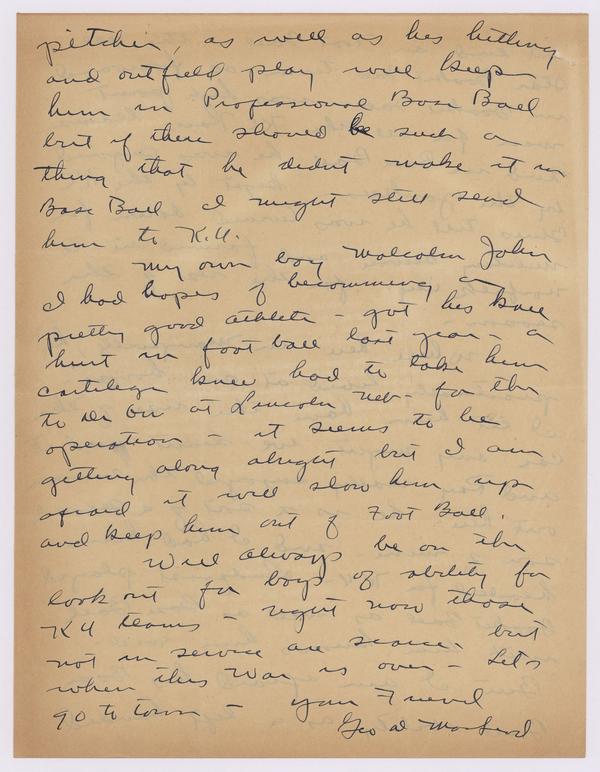 pitcher, as well as his hitting
and outfield play will keep
him in Professional Base Ball
but if there should be such a
thing that he didnt make it in
Base Ball I might still send
him to K.U.
My own boy Malcolm John
I had hopes of becomming a
pretty good athlete - got his knee
hurt in foot ball last year - a
cartilege knee had to take him
to Dr Orr at Lincoln Neb - for the
operation - it seems to be
getting along alright but I am
afraid it will slow him up
and keep him out of Foot Ball.
Will always be on the
look out for boys of ability for
KU teams - right now those
not in service are scarce - but
when this War is over - Let's
go to town - your Friend
Geo